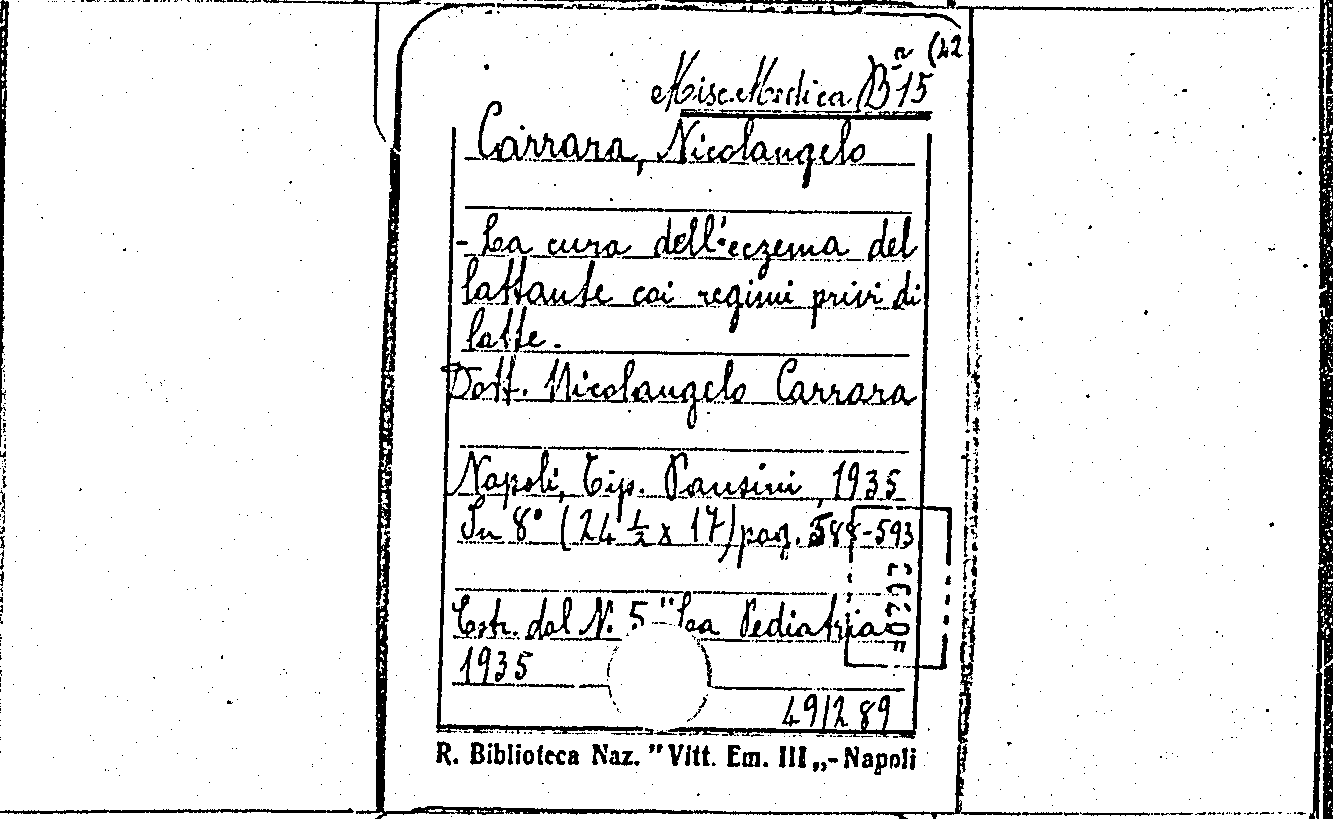 Misc. Medica B 15 (42
Carrara, Nicolangelo
- La cura dell'eczema del
lattante coi regimi privi di
latte.
Dott. Nicolangelo Carrara
Napoli, Tip. Pansini, 1935
In 8° (24 ½ x 17) pag. 588-593
Estr. dal N. 5 "La Pediatria
1935
491289
R. Biblioteca Naz. "Vitt. Em. III„- Napoli